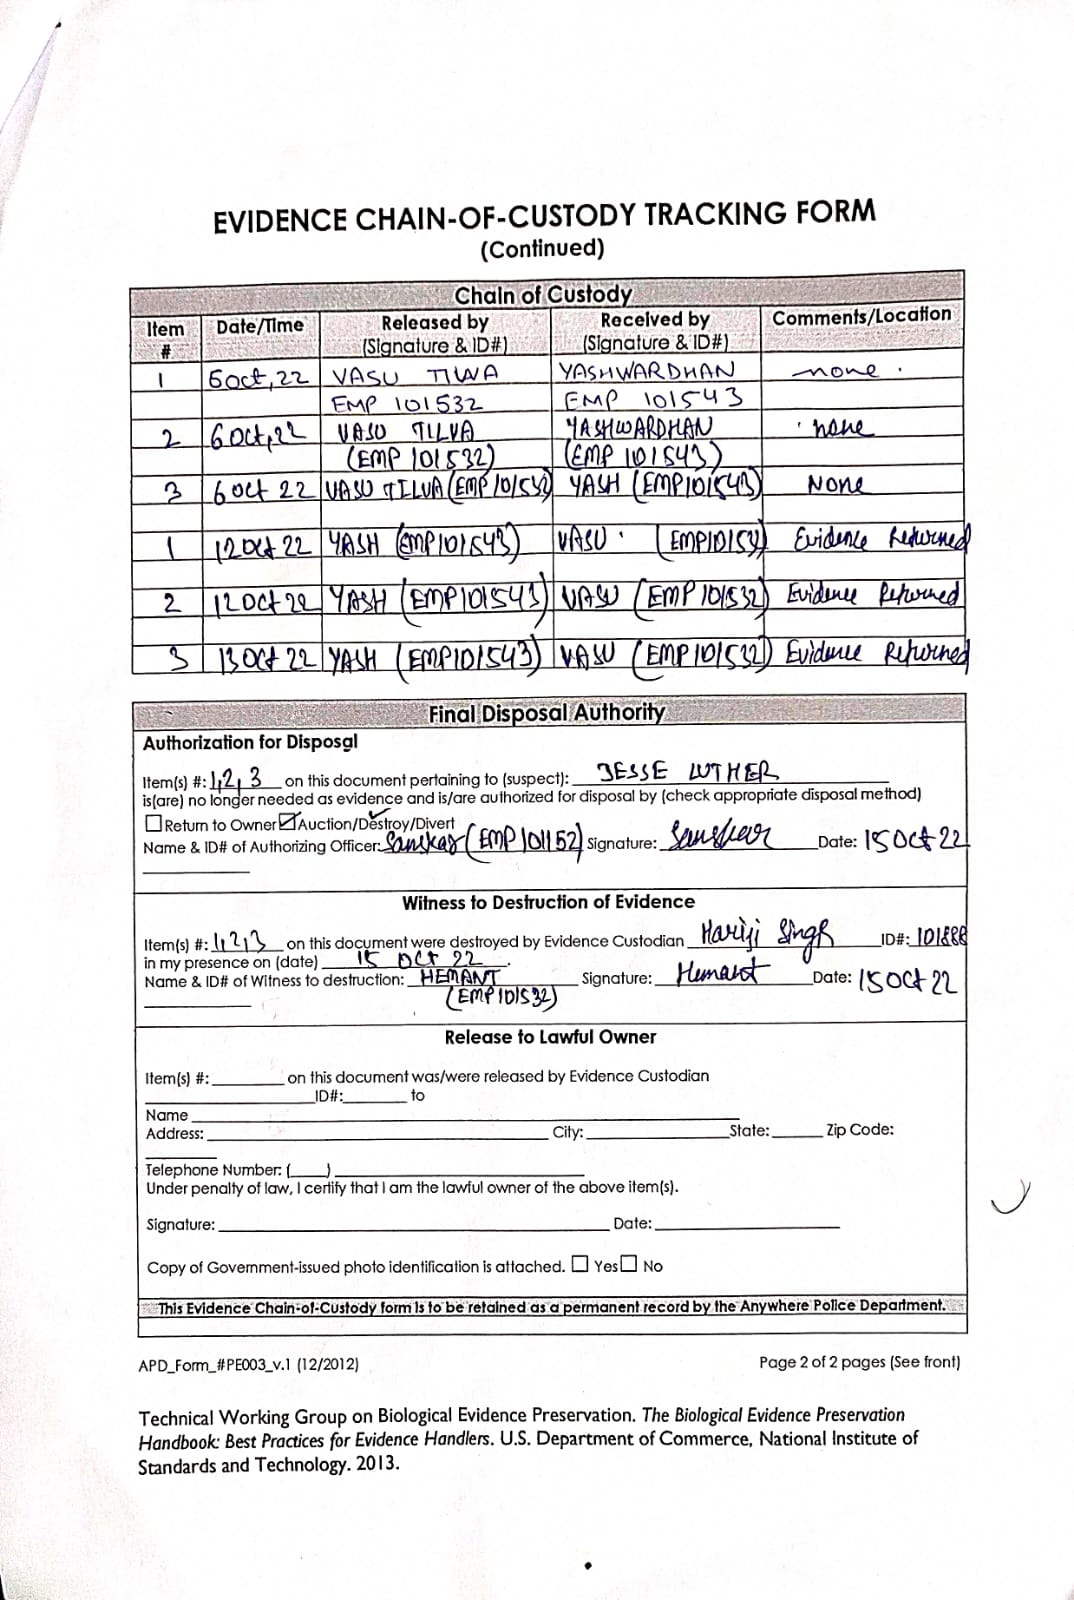 EVIDENCE CHAIN-OF-CUSTODY TRACKING FORM
(Continued)
Chain of Custody
Item # Date/Time Released by (Signature & ID#) Received by (Signature & ID#) Comments/Location
1 6 oct, 22 VASU TIWA YASHWARDHAN none.
EMP 101532 EMP 101543
2 6 Oct, 22 VASU TILVA YASHWARDHAN none
(EMP 101532) (EMP 101543)
3 6 Oct 22 VASU TILVA (EMP101532) YASH (EMP101543) None
1 12 Oct 22 YASH (EMP101543) VASU. (EMP10153) Evidence Returned
2 12 Oct 22 YASH (EMP101543) VASU (EMP101532) Evidence Returned
3 13 Oct 22 YASH (EMP101543) VASU (EMP101532) Evidence Returned
Final Disposal Authority
Authorization for Disposal
Item(s) #: 1,2,3 on this document pertaining to (suspect): JESSE LUTHER
is(are) no longer needed as evidence and is/are authorized for disposal by (check appropriate disposal method)
☐ Return to Owner ☑ Auction/Destroy/Divert
Name & ID# of Authorizing Officer: Sanskar (EMP 101152) Signature: Sanskar Date: 15 Oct 22
Witness to Destruction of Evidence
Item(s) #: 1,2,3 on this document were destroyed by Evidence Custodian Hariji Singh ID#: 101888
in my presence on (date) 15 OCT 22.
Name & ID# of Witness to destruction: HEMANT Signature: Hemant Date: 15 Oct 22
(EMP101532)
Release to Lawful Owner
Item(s) #: on this document was/were released by Evidence Custodian
ID#: to
Name
Address: City: State: Zip Code:
Telephone Number: ( )
Under penalty of law, I certify that I am the lawful owner of the above item(s).
Signature: Date:
Copy of Government-issued photo identification is attached. ☐ Yes ☐ No
This Evidence Chain-of-Custody form is to be retained as a permanent record by the Anywhere Police Department.
APD_Form_#PE003_v.1 (12/2012) Page 2 of 2 pages (See front)
Technical Working Group on Biological Evidence Preservation. The Biological Evidence Preservation
Handbook: Best Practices for Evidence Handlers. U.S. Department of Commerce, National Institute of
Standards and Technology. 2013.